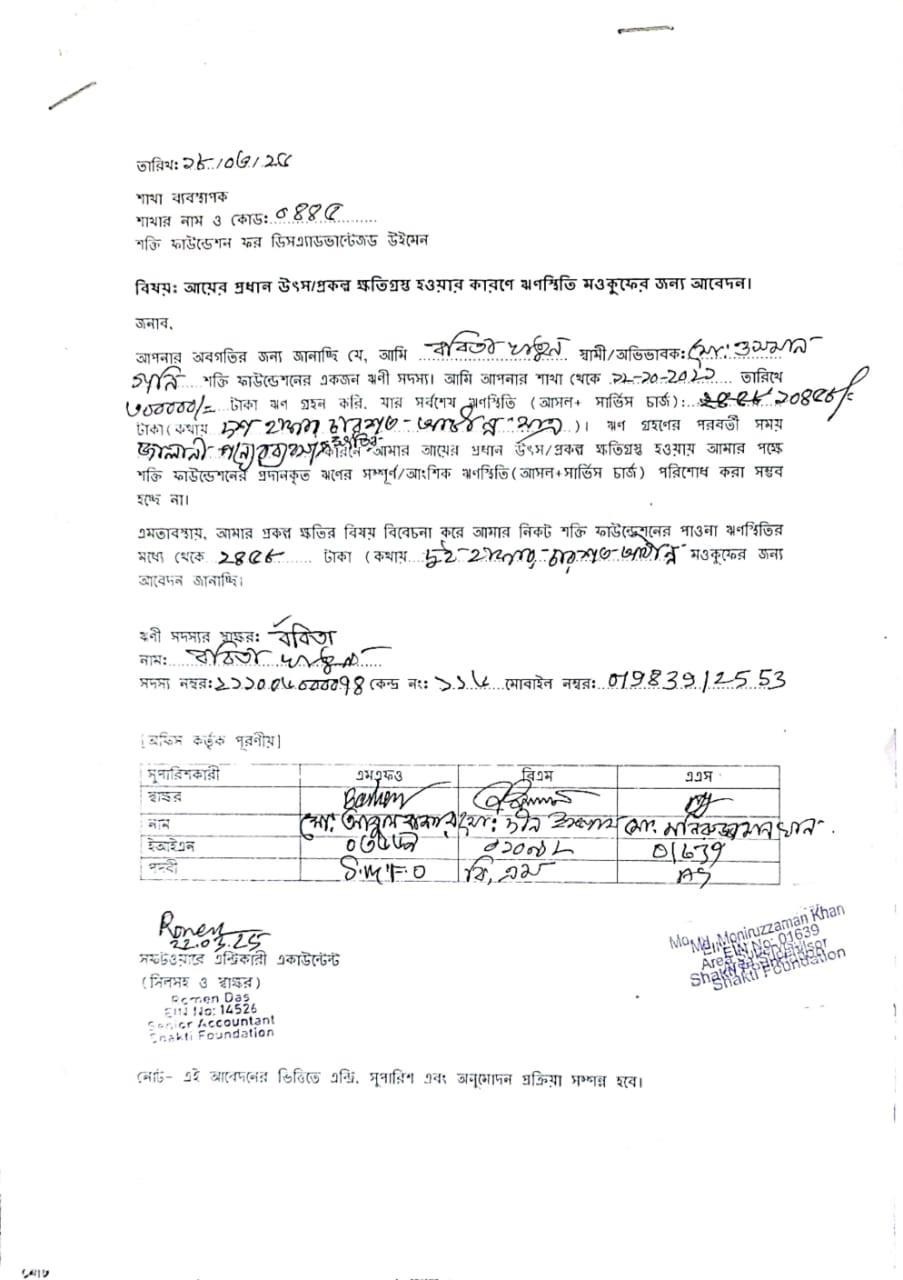 তারিখ: ১৮/০৩/২৫
শাখা ব্যবস্থাপক
শাখার নাম ও কোড: ০৪৪৫
শক্তি ফাউন্ডেশন ফর ডিসএ্যাডভান্টেজড উইমেন
বিষয়: আয়ের প্রধান উৎস/প্রকল্প ক্ষতিগ্রস্ত হওয়ার কারণে ঋণস্থিতি মওকুফের জন্য আবেদন।
জনাব,
আপনার অবগতির জন্য জানাচ্ছি যে, আমি ববিতা খাতুন স্বামী/অভিভাবক: মো: ওসমান
গনি শক্তি ফাউন্ডেশনের একজন ঋণী সদস্য। আমি আপনার শাখা থেকে তারিখে
৩০০০০০/= টাকা ঋণ গ্রহন করি, যার সর্বশেষ ঋণস্থিতি (আসল+ সার্ভিস চার্জ): ১০৪৫৮/=
টাকা(কথায় দশ হাজার চারশত আটান্ন মাত্র)। ঋণ গ্রহণের পরবর্তী সময়
জ্বালানী পন্যের ব্যবসা কারনে আমার আয়ের প্রধান উৎস/প্রকল্প ক্ষতিগ্রস্ত হওয়ায় আমার পক্ষে
শক্তি ফাউন্ডেশনের প্রদানকৃত ঋণের সম্পূর্ণ/আংশিক ঋণস্থিতি(আসল+সার্ভিস চার্জ) পরিশোধ করা সম্ভব
হচ্ছে না।
এমতাবস্থায়, আমার প্রকল্প ক্ষতির বিষয় বিবেচনা করে আমার নিকট শক্তি ফাউন্ডেশনের পাওনা ঋণস্থিতির
মধ্যে থেকে ২৪৫৮ টাকা (কথায় দুই হাজার চারশত আটান্ন মওকুফের জন্য
আবেদন জানাচ্ছি।
ঋণী সদস্যর স্বাক্ষর: ববিতা
নাম: ববিতা খাতুন
সদস্য নম্বর: কেন্দ্র নং: ১১৬ মোবাইল নম্বর: 01983912553
[অফিস কর্তৃক পূরণীয়]
সুপারিশকারী এমএফও বিএম এএস
স্বাক্ষর
নাম মো: মো: মো: মনিরুজ্জামান খান
ইআইএন 01639
পদবী S.M.F.O বি,এম AS
Ronen
22.03.25
সফটওয়ারে এন্ট্রিকারী একাউন্টেন্ট
(সিলসহ ও স্বাক্ষর)
Romen Das
EIN No: 14526
Senior Accountant
Shakti Foundation
Md. Moniruzzaman Khan
EIN No: 01639
Area Supervisor
Shakti Foundation
নোট- এই আবেদনের ভিত্তিতে এন্ট্রি, সুপারিশ এবং অনুমোদন প্রক্রিয়া সম্পন্ন হবে।